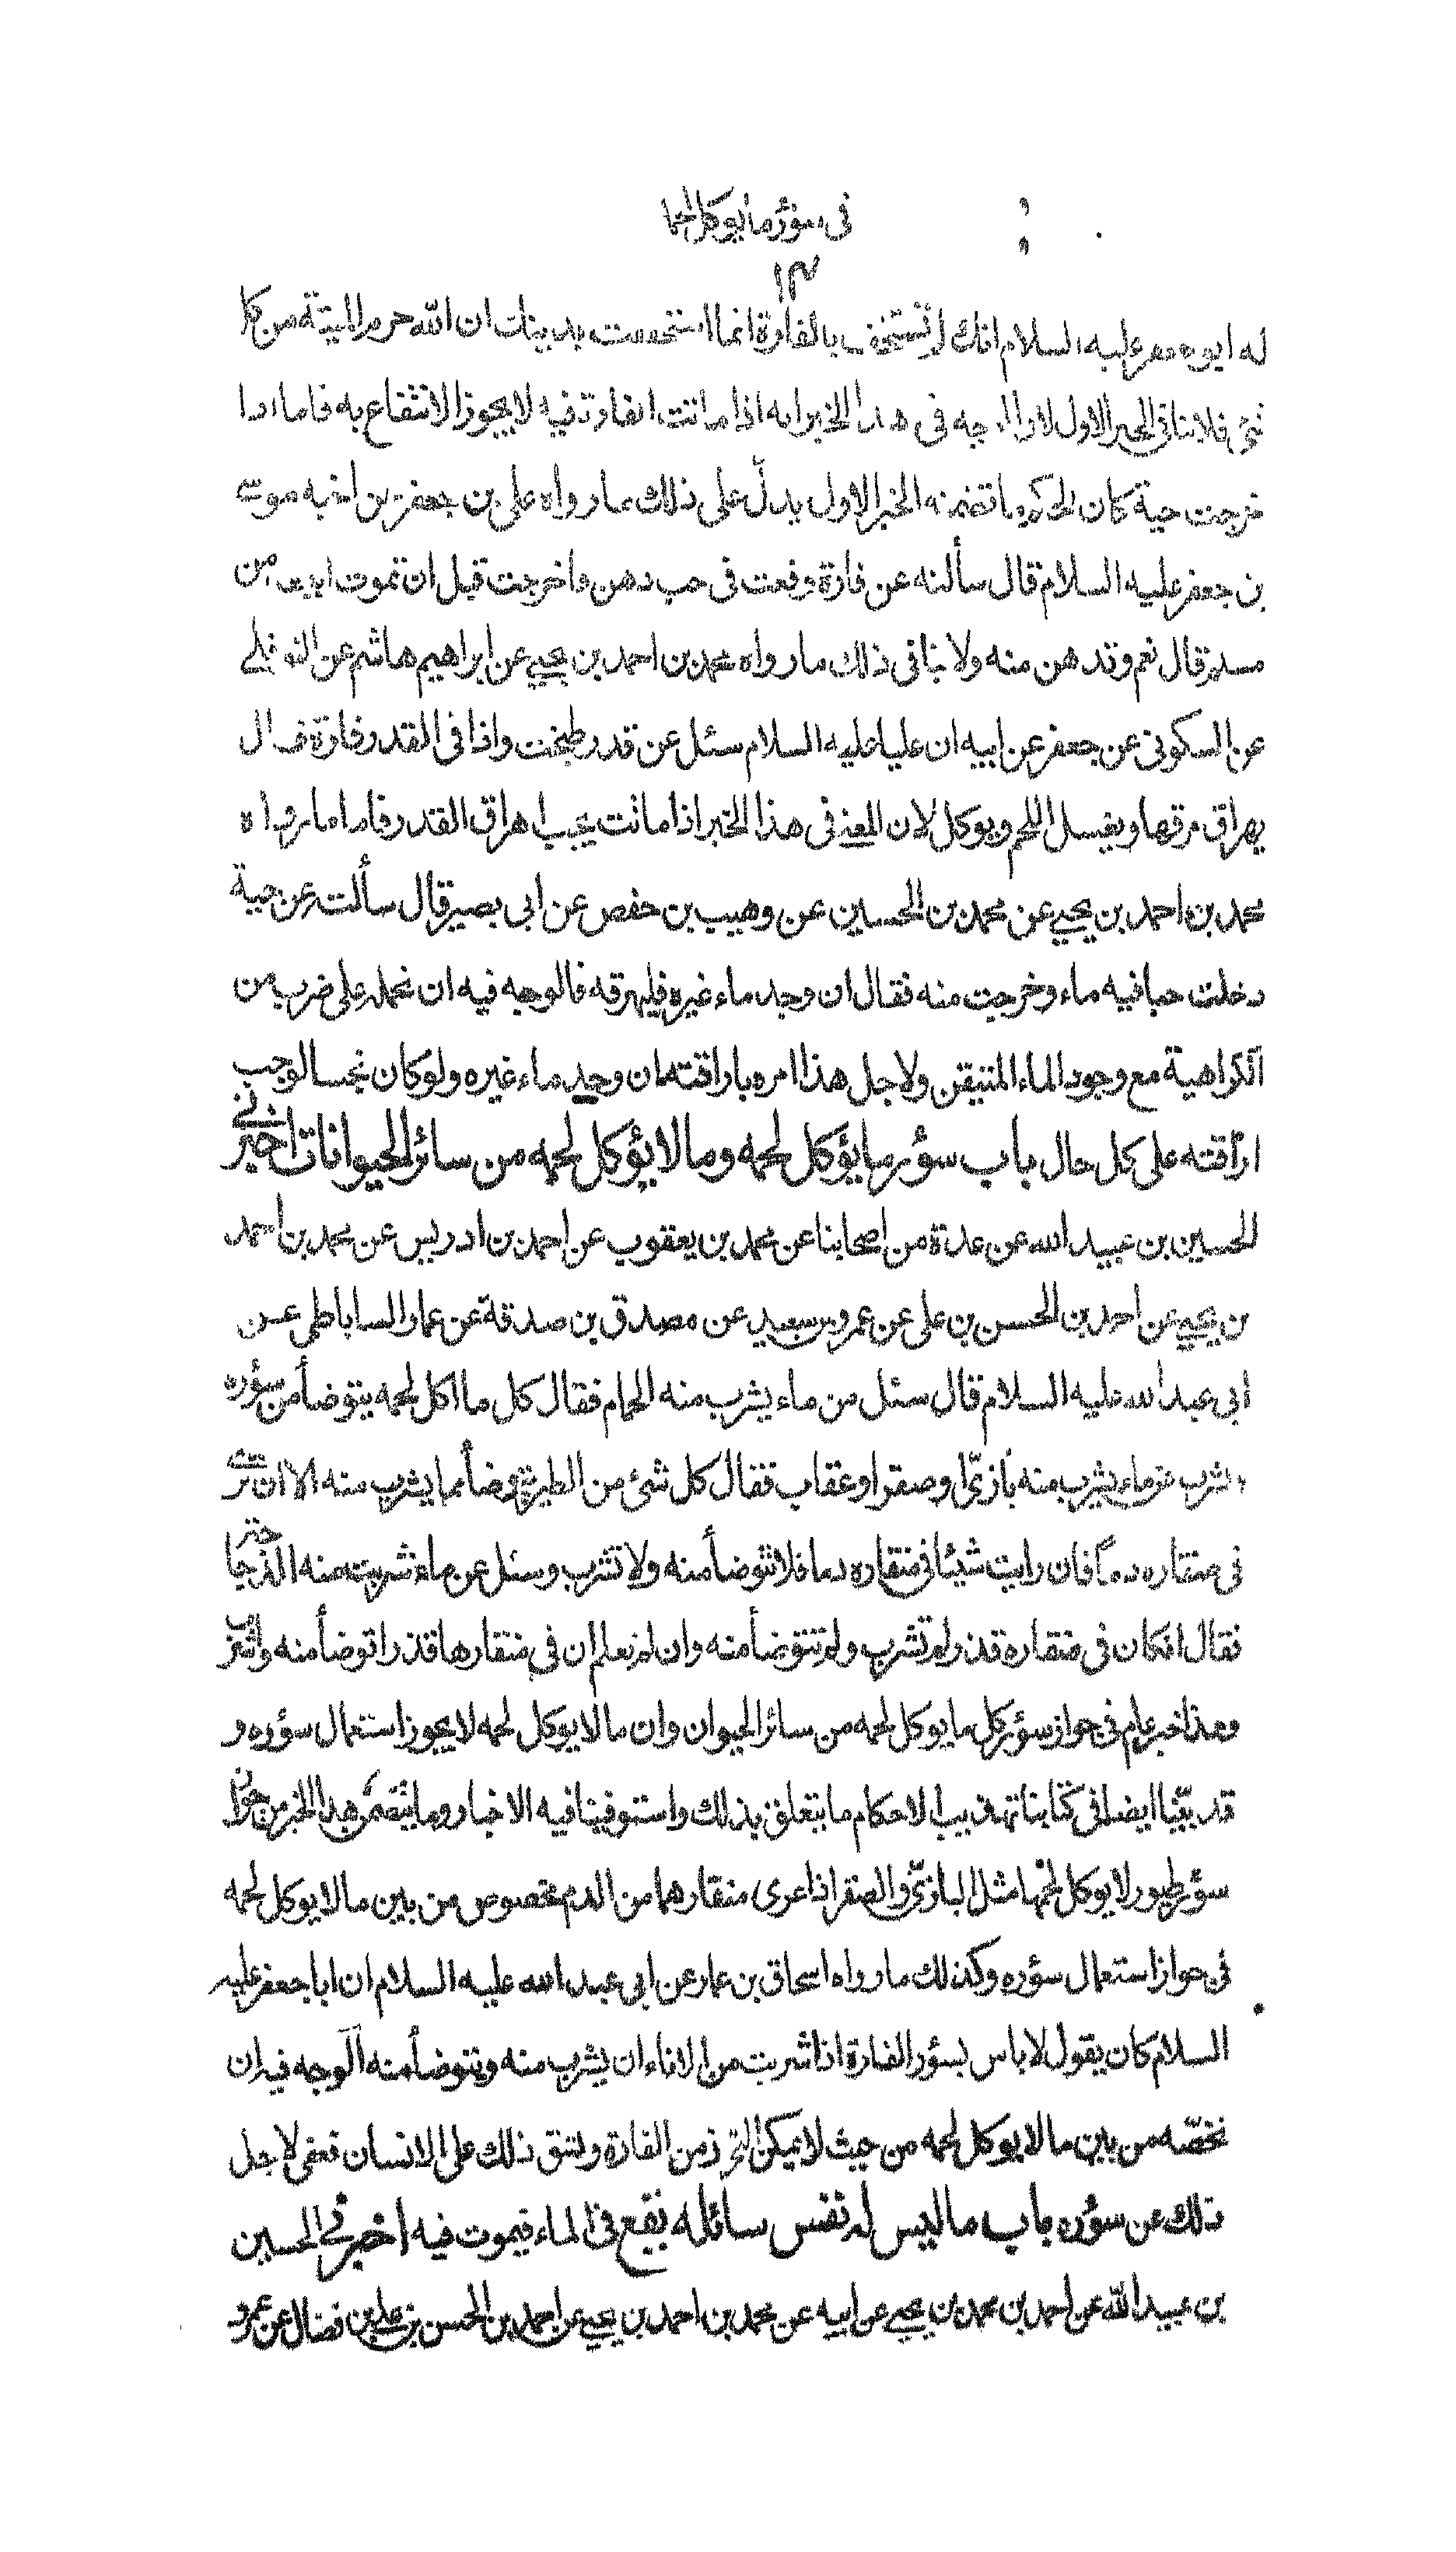 فى سؤر ما يوكل لحما
١٣
له ابو جعفر عليه السلام انك لم تستخف بالفارة انما استخففت بدينك ان الله حرم الميتة من كل
شئ فلا ينافى الخبر الاول لان الوجه فى هذا الخبر انه اذا ماتت الفارة فيه لا يجوز الانتفاع به فاما اذا
خرجت حية كان الحكم ما تضمنه الخبر الاول يدلّ على ذلك ما رواه على بن جعفر عن اخيه موسى
بن جعفر عليه السلام قال سألته عن فارة وقعت فى حب دهن واخرجت قبل ان تموت ايبيعه من
مسلم قال نعم وتدهن منه ولا ينافى ذلك ما رواه محمد بن احمد بن يحيى عن ابراهيم هاشم عن النوفلى
عن السكونى عن جعفر عن ابيه ان عليا عليه السلام سئل عن قدر طبخت واذا فى القدر فارة قال
يهراق مرقها ويغسل اللحم ويوكل لان المعنى فى هذا الخبر اذا ماتت يجب اهراق القدر فاما ما رواه
محمد بن احمد بن يحيى عن محمد بن الحسين عن وهيب بن حفص عن ابى بصير قال سألته عن حية
دخلت حبا فيه ماء وخرجت منه فقال ان وجد ماء غيره فليهرقه فالوجه فيه ان نحمله على ضرب من
الكراهية مع وجود الماء المتيقن ولاجل هذا امره باراقته ان وجد ماء غيره ولو كان نجسا لوجب
اراقته على كل حال باب سؤر ما يؤكل لحمه وما لا يؤكل لحمه من سائر الحيوانات اخبرنى
الحسين بن عبيد الله عن عدة من اصحابنا عن محمد بن يعقوب عن احمد بن ادريس عن محمد بن احمد
بن يحيى عن احمد بن الحسن بن على عن عمرو بن سعيد عن مصدق بن صدقة عن عمار الساباطى عن
ابى عبد الله عليه السلام قال سئل عن ماء يشرب منه الحمام فقال كل ما اكل لحمه يتوضأ من سؤره
و يشرب عن ماء يشرب منه بازىّ او صقر او عقاب فقال كل شئ من الطير يتوضأ مما يشرب منه الا ان ترى
فى منقاره دما فان رايت شيئا فى منقاره دما فلا تتوضأ منه ولا تشرب وسئل عن ماء شربت منه الدجاجة
فقال ان كان فى منقاره قذر لم تشرب ولم تتوضأ منه وان لم تعلم ان فى منقارها قذرا توضأ منه واشرب
وهذا خبر عام فى جواز سؤر كل ما يوكل لحمه من سائر الحيوان وان ما لا يوكل لحمه لا يجوز استعمال سؤره و
قد بيّنا ايضا فى كتابنا تهذيب الاحكام ما يتعلق بذلك واستوفينا فيه الاخبار وما يتضمن هذا الخبر من جواز
سؤر طيور لا يوكل لحمها مثل البازىّ والصقر اذا عرى منقارهما من الدم مخصوص من بين ما لا يوكل لحمه
فى جواز استعمال سؤره وكذلك ما رواه اسحاق بن عمار عن ابى عبد الله عليه السلام ان ابا جعفر عليه
السلام كان يقول لا باس بسؤر الفارة اذا شربت من الاناء ان يشرب منه ويتوضأ منه الوجه فيه ان
نخصّه من بين ما لا يوكل لحمه من حيث لا يمكن التحرز من الفارة ويشق ذلك على الانسان فعفى لاجل
ذلك عن سؤره باب ما ليس له نفس سائله يقع فى الماء فيموت فيه اخبرنى الحسين
بن عبيد الله عن احمد بن محمد بن يحيى عن ابيه عن محمد بن احمد بن يحيى عن احمد بن الحسن بن على بن فضال عن عمرو